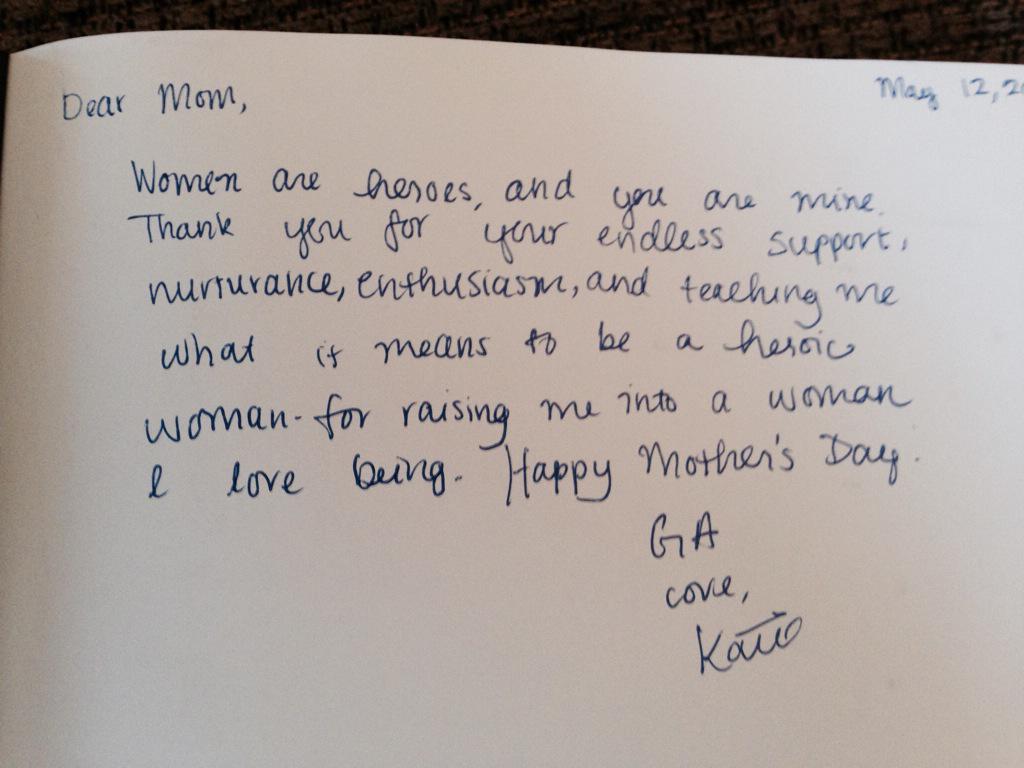 May 12, 2
Dear Mom,
Women are heroes, and you are mine.
Thank you for your endless support,
nurturance, enthusiasm, and teaching me
what it means to be a heroic
woman - for raising me into a woman
I love being. Happy Mother's Day.
GA
love,